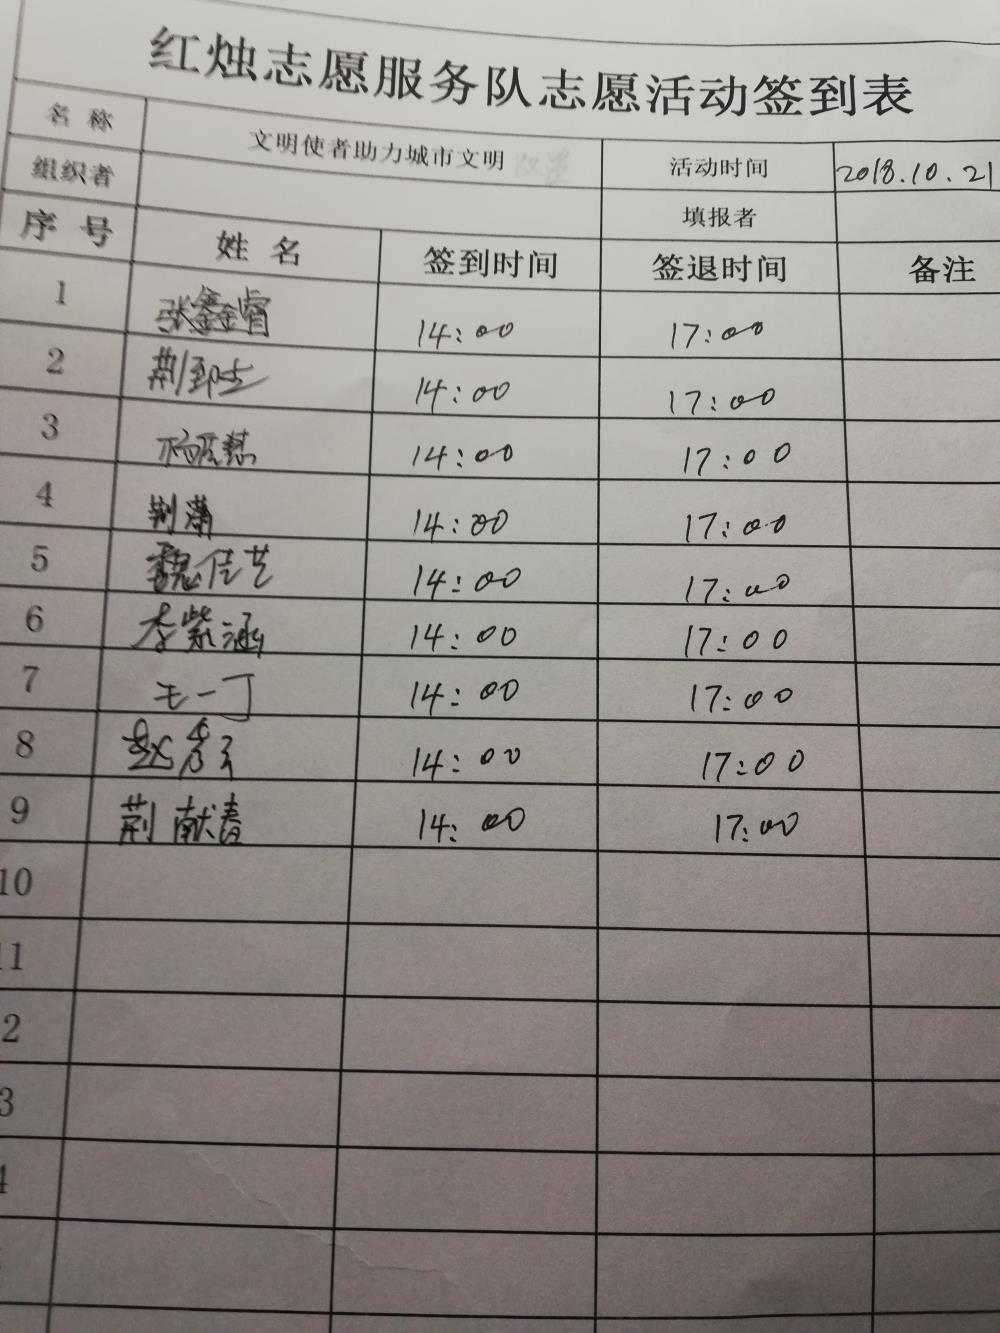 红烛志愿服务队志愿活动签到表
名称 文明使者助力城市文明 活动时间 2018.10.21
组织者 填报者
序号 姓名 签到时间 签退时间 备注
1 张鑫睿 14:00 17:00
2 荆 14:00 17:00
3 杨 14:00 17:00
4 荆潇 14:00 17:00
5 魏佳艺 14:00 17:00
6 李紫涵 14:00 17:00
7 王一丁 14:00 17:00
8 赵 14:00 17:00
9 荆献春 14:00 17:00
10
11
2
3
4